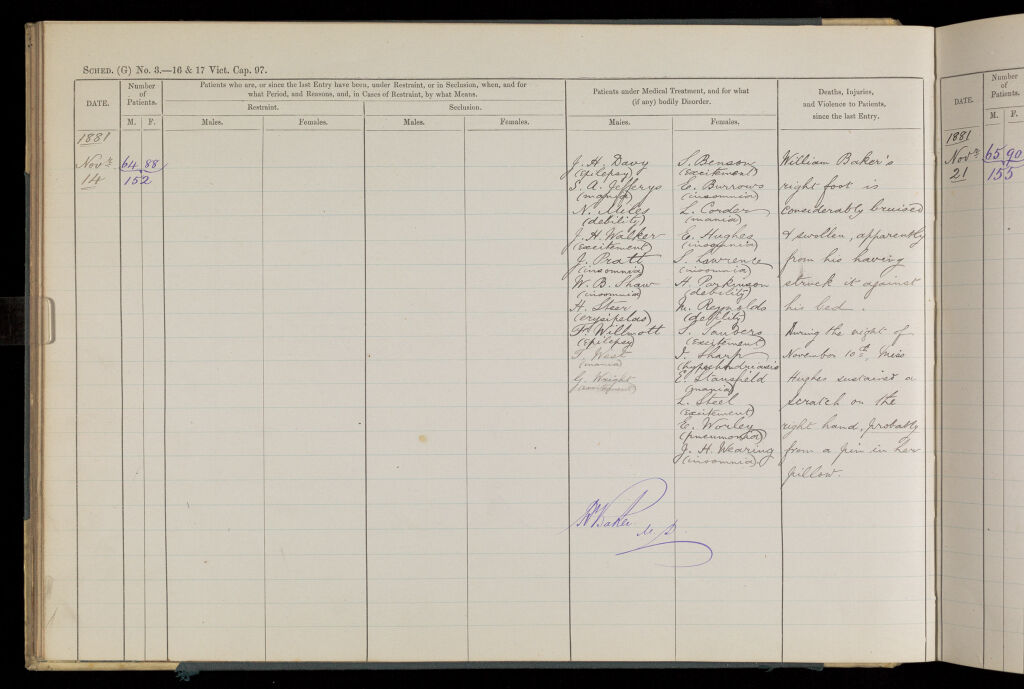 SCHED. (G) No. 3.—16 & 17 Vict. Cap. 97.
DATE.
Number
of
Patients.
M. F.
Patients who are, or since the last Entry have been, under Restraint, or in Seclusion, when, and for
what Period, and Reasons, and, in Cases of Restraint, by what Means.
Restraint.
Seclusion.
Males.
Females.
Males.
Females.
Patients under Medical Treatment, and for what
(if any) bodily Disorder.
Males.
Females.
Deaths, Injuries,
and Violence to Patients,
since the last Entry.
1881
Novr
14
64 88
152
J. H. Davy
(epilepsy)
S. A. Jefferys
(mania)
N. Miles
(debility)
J. H. Walker
(excitement)
J. Pratt
(insomnia)
W. B. Shaw
(insomnia)
H. Steer
(erysipelas)
F. Willmott
(epilepsy)
T. West
(mania)
G. Wright
(excitement)
S. Benson
(excitement)
E. Burrows
(insomnia)
L. Corder
(mania)
E. Hughes
(insomnia)
S. Lawrence
(insomnia)
H. Parkinson
(debility)
M. Reynolds
(debility)
S. Saubers
(excitement)
I. Sharp
(hypochondriasis)
E. Stansfield
(mania)
L. Steel
(excitement)
E. Worley
(pneumonia)
J. H. Wearing
(insomnia)
William Baker's
right foot is
considerably bruised
& swollen, apparently
from his having
struck it against
his bed.
During the night of
November 10th, Miss
Hughes sustained a
scratch on the
right hand, probably
from a pin in her
pillow.
Baker M.D.
DATE.
Number
of
Patients.
M. F.
1881
Novr
21
65 90
155